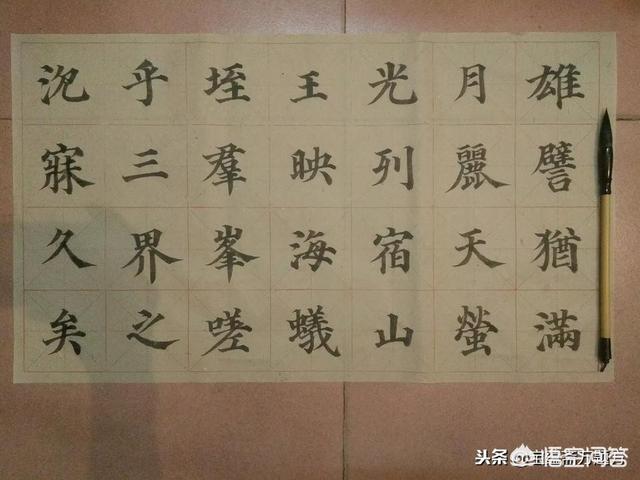 雄譬猶滿
月麗天螢
光列宿山
王映海蟻
垤羣峯嗟
乎三界之
沉寐久矣
头条
悟空问答